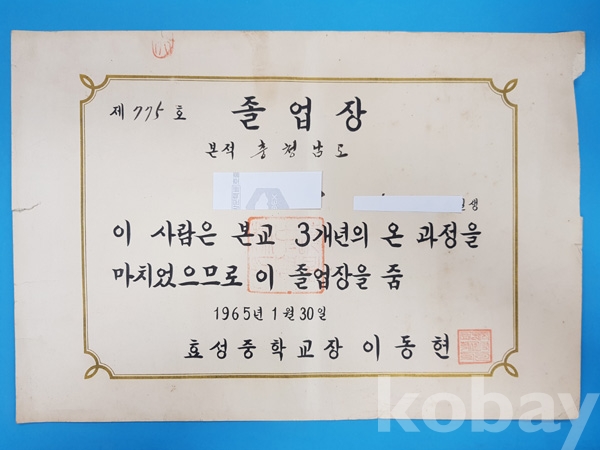 제 775 호
졸업장
본적 충청남도
일생
이 사람은 본교 3개년의 온 과정을
마치었으므로 이 졸업장을 줌
1965년 1월 30일
효성중학교장 이동현
kobay